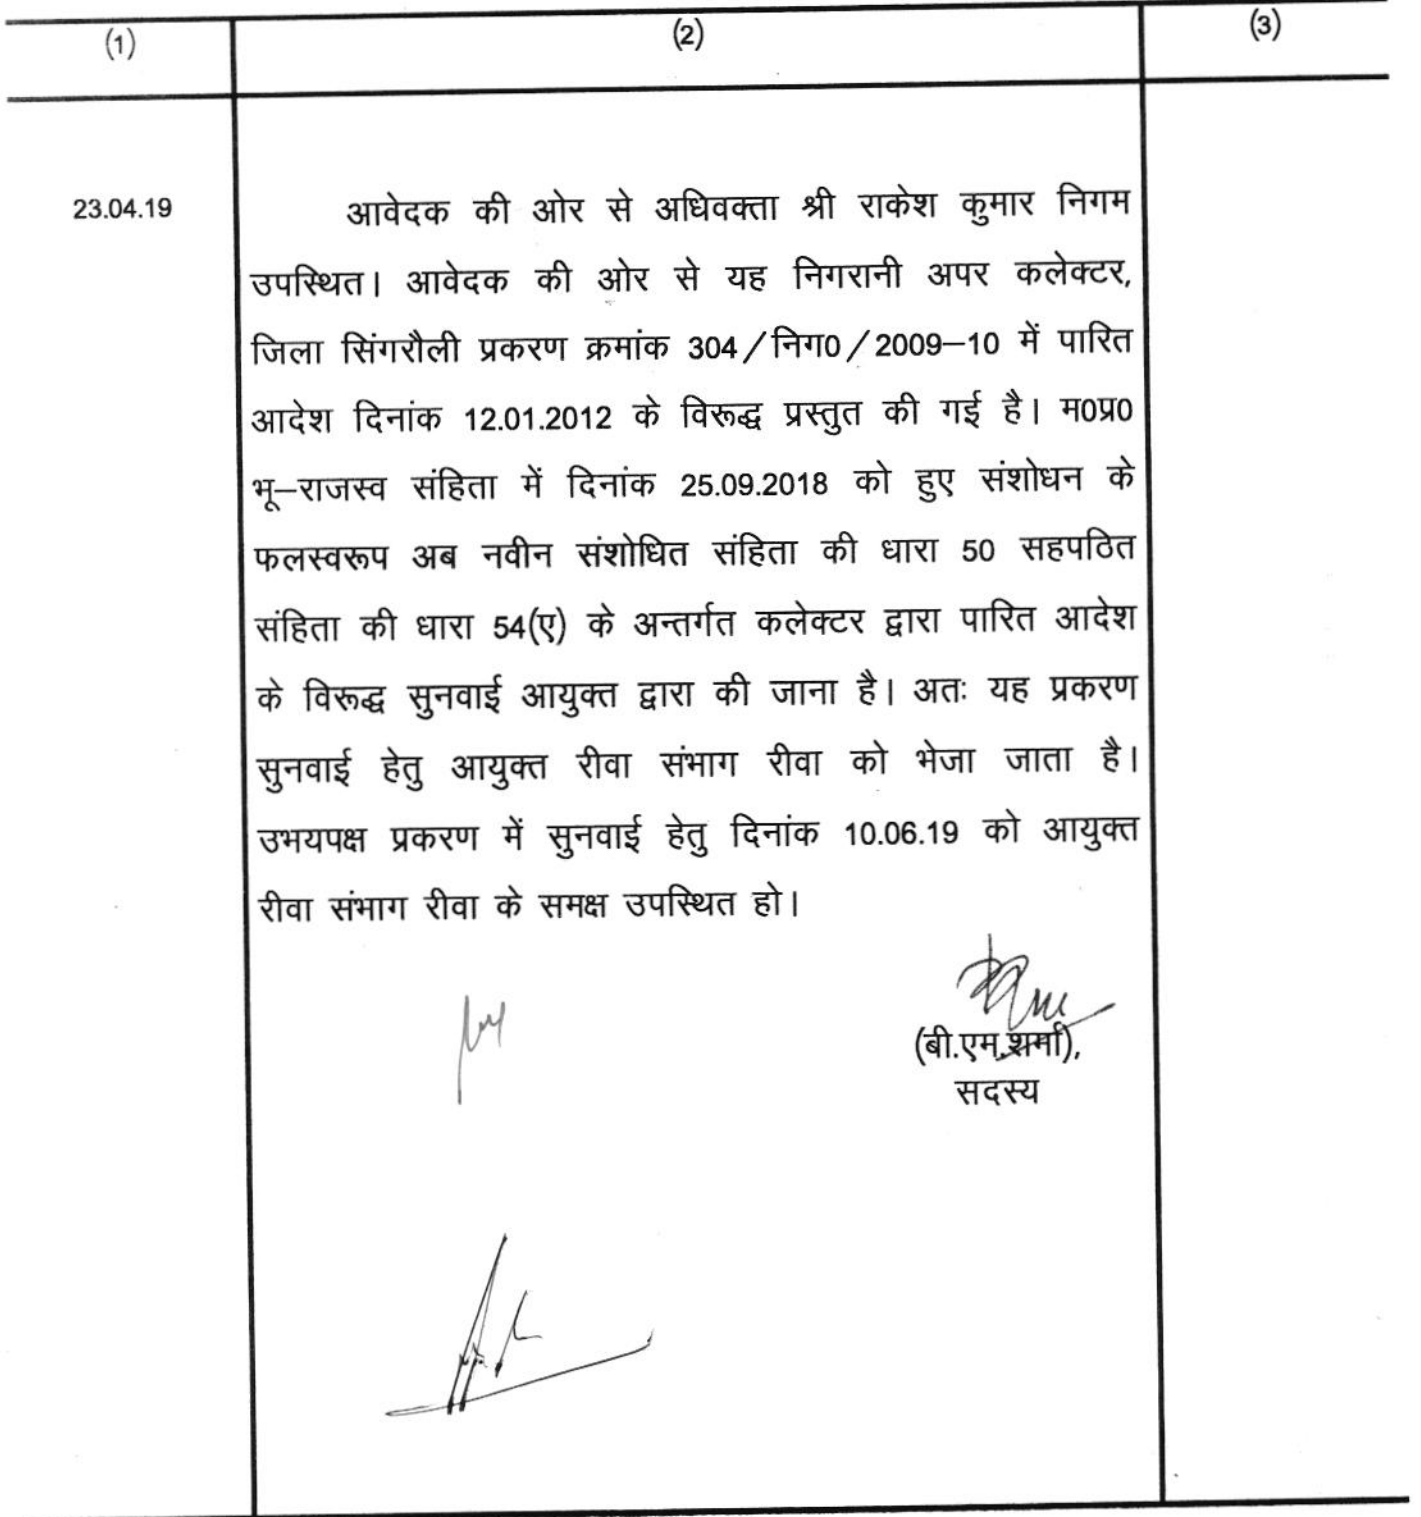 (1) (2) (3)
23.04.19 आवेदक की ओर से अधिवक्ता श्री राकेश कुमार निगम
उपस्थित। आवेदक की ओर से यह निगरानी अपर कलेक्टर,
जिला सिंगरौली प्रकरण क्रमांक 304/निग0/2009–10 में पारित
आदेश दिनांक 12.01.2012 के विरूद्ध प्रस्तुत की गई है। म0प्र0
भू–राजस्व संहिता में दिनांक 25.09.2018 को हुए संशोधन के
फलस्वरूप अब नवीन संशोधित संहिता की धारा 50 सहपठित
संहिता की धारा 54(ए) के अन्तर्गत कलेक्टर द्वारा पारित आदेश
के विरूद्ध सुनवाई आयुक्त द्वारा की जाना है। अतः यह प्रकरण
सुनवाई हेतु आयुक्त रीवा संभाग रीवा को भेजा जाता है।
उभयपक्ष प्रकरण में सुनवाई हेतु दिनांक 10.06.19 को आयुक्त
रीवा संभाग रीवा के समक्ष उपस्थित हो।
(बी.एम.शर्मा),
सदस्य